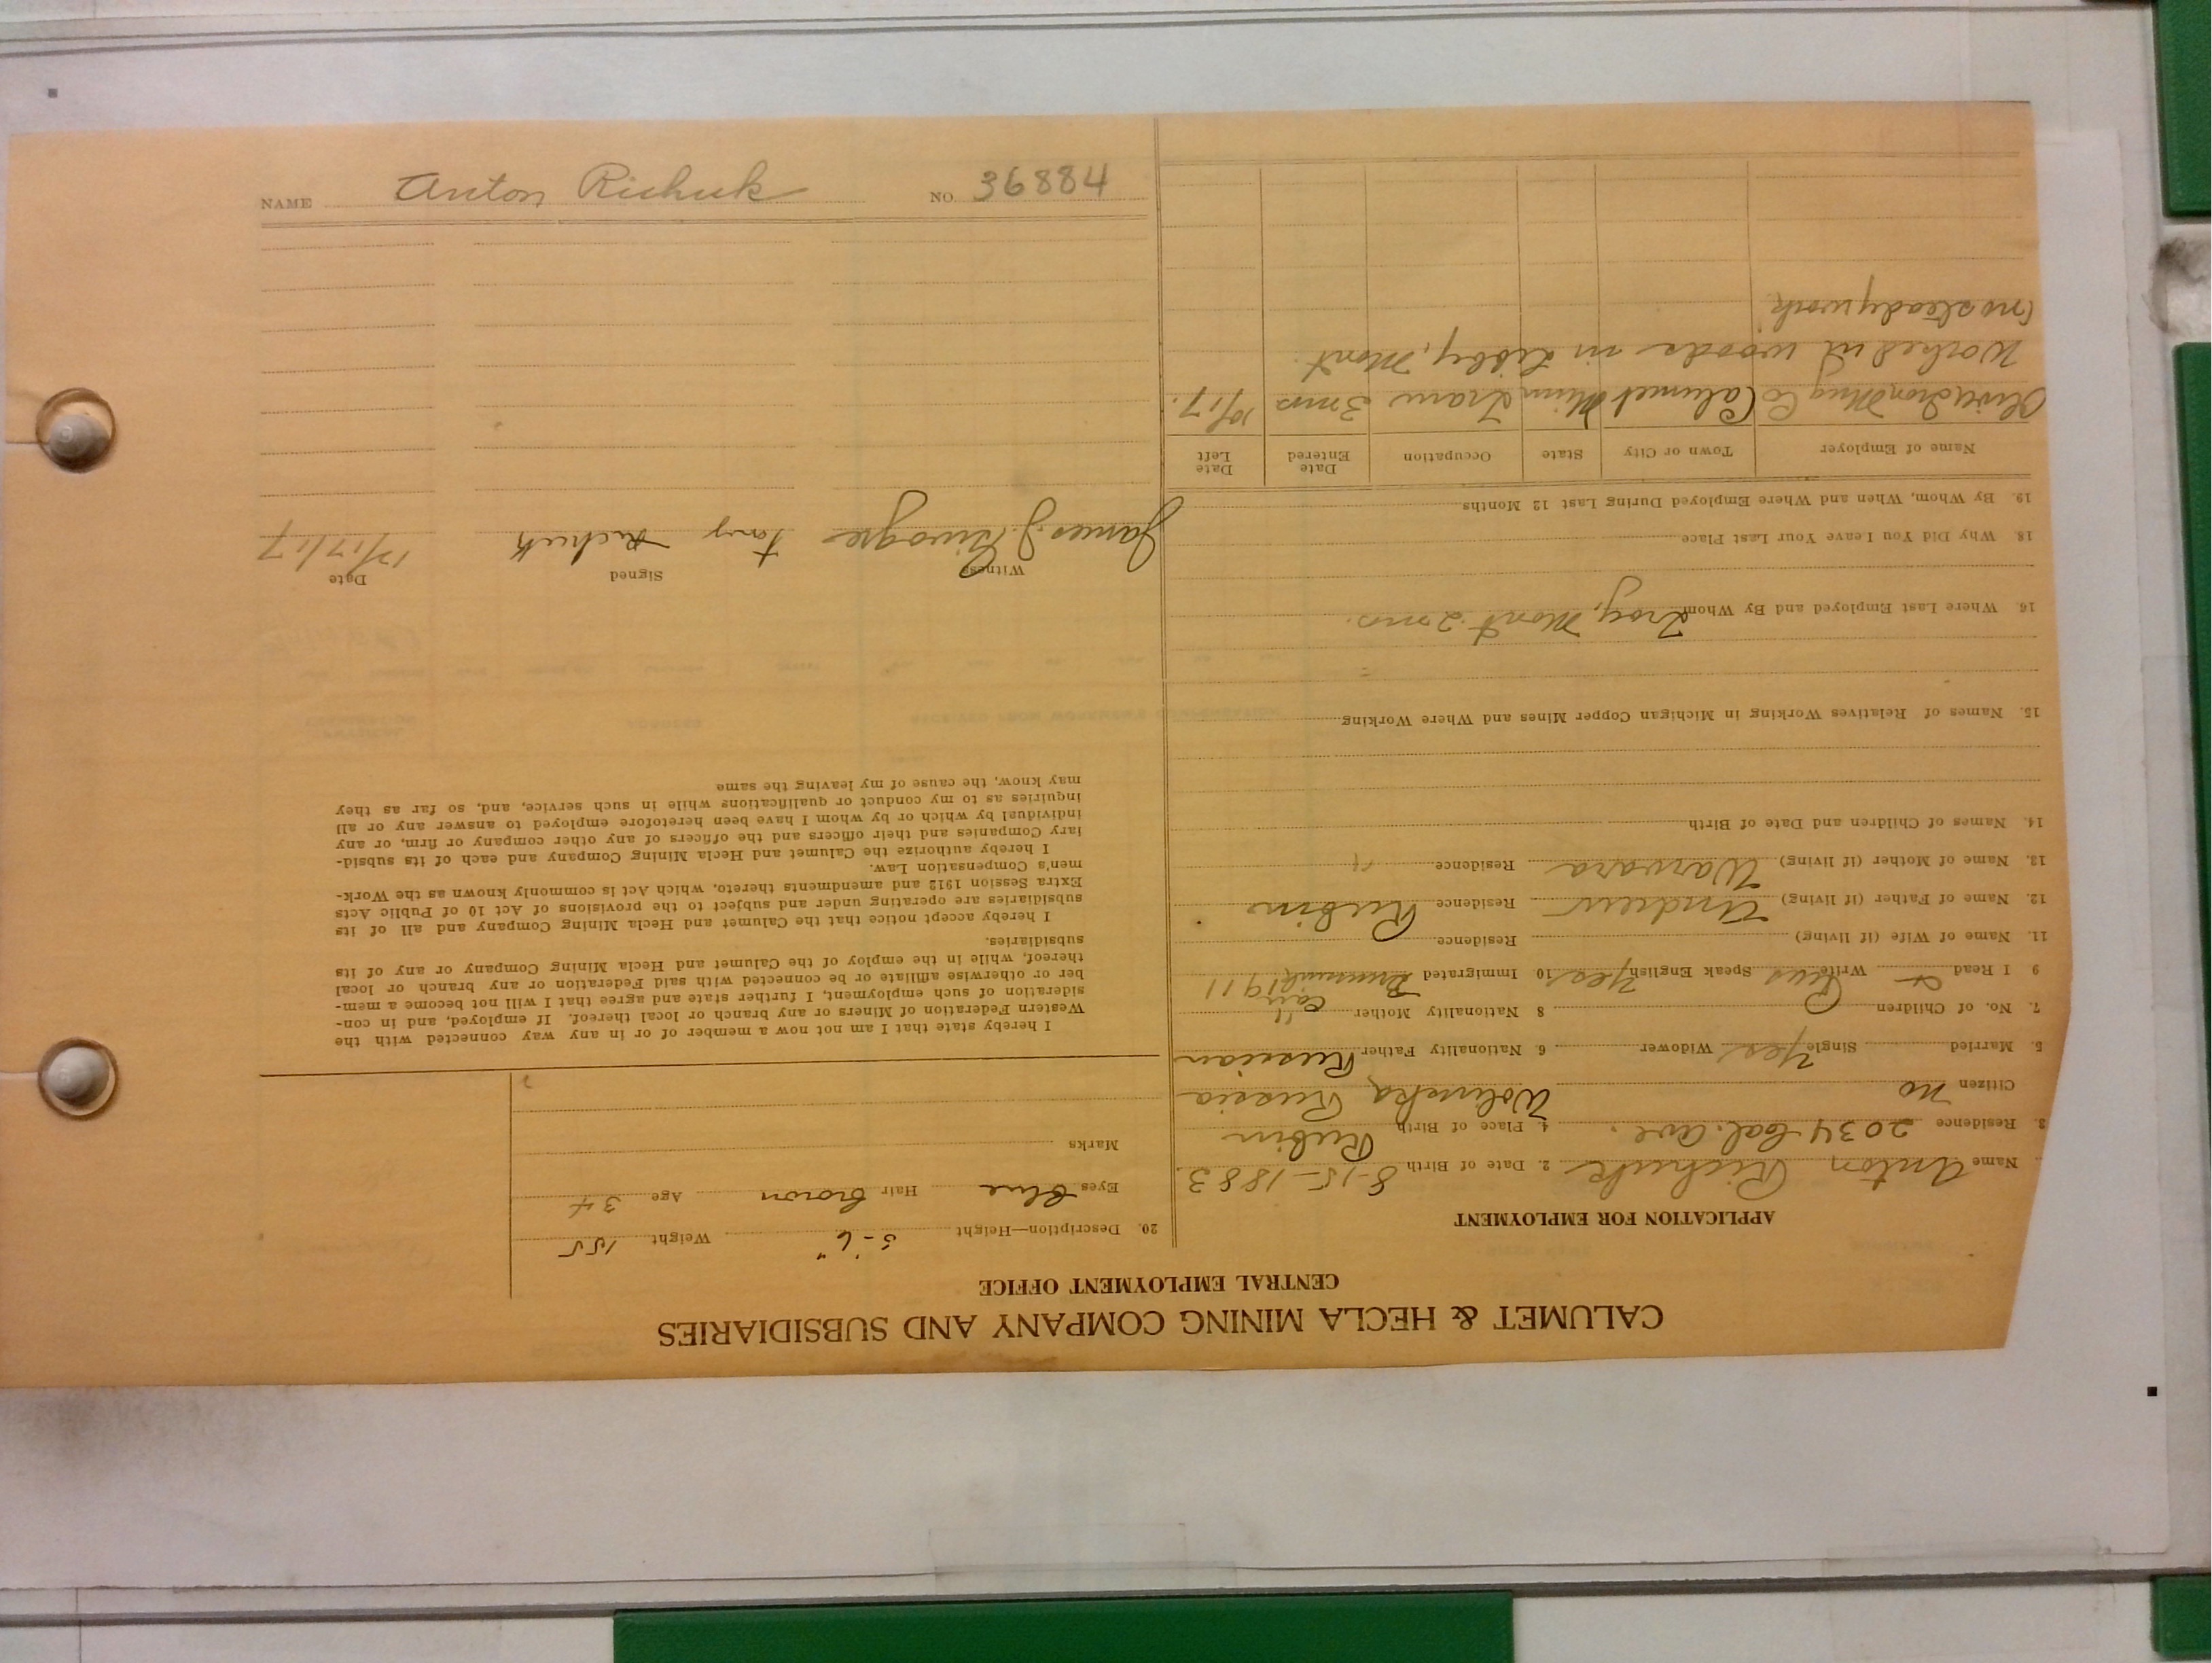 CALUMET & HECLA MINING COMPANY AND SUBSIDIARIES
CENTRAL EMPLOYMENT OFFICE
APPLICATION FOR EMPLOYMENT
Name Anton Richuk 2. Date of Birth 8-15-1883
3. Residence 2034 Cal. Ave. 4. Place of Birth Rubin
Citizen no Wolinska Russia
5. Married Single Yes Widower 6. Nationality Father Russian
7. No. of Children 8 Nationality Mother "
9 I Read + Write Rus Speak English Yes 10 Immigrated 1911
11. Name of Wife (if living) Residence
12. Name of Father (if living) Andrew Residence Rubin
13. Name of Mother (if living) Warvara Residence "
14. Names of Children and Date of Birth
15. Names of Relatives Working in Michigan Copper Mines and Where Working
16. Where Last Employed and By Whom Troy, Mont. 2 mos.
18. Why Did You Leave Your Last Place
19. By Whom, When and Where Employed During Last 12 Months
Name of Employer Town or City State Occupation Date Entered Date Left
Oliver Iron Mng Co Calumet Minn Tram 3 mos 10/17.
Worked in woods in Libby, Mont.
(no steady work
20. Description—Height 5-6" Weight 155
Eyes Blue Hair Brown Age 34
Marks
I hereby state that I am not now a member of or in any way connected with the
Western Federation of Miners or any branch or local thereof. If employed, and in con-
sideration of such employment, I further state and agree that I will not become a mem-
ber or otherwise affiliate or be connected with said Federation or any branch or local
thereof, while in the employ of the Calumet and Hecla Mining Company or any of its
subsidiaries.
I hereby accept notice that the Calumet and Hecla Mining Company and all of its
subsidiaries are operating under and subject to the provisions of Act 10 of Public Acts
Extra Session 1912 and amendments thereto, which Act is commonly known as the Work-
men's Compensation Law.
I hereby authorize the Calumet and Hecla Mining Company and each of its subsid-
iary Companies and their officers and the officers of any other company or firm, or any
individual by which or by whom I have been heretofore employed to answer any or all
inquiries as to my conduct or qualifications while in such service, and, so far as they
may know, the cause of my leaving the same
Witness Signed Date
James J. Tony Richuk 12/17/17
NAME Anton Richuk NO 36884